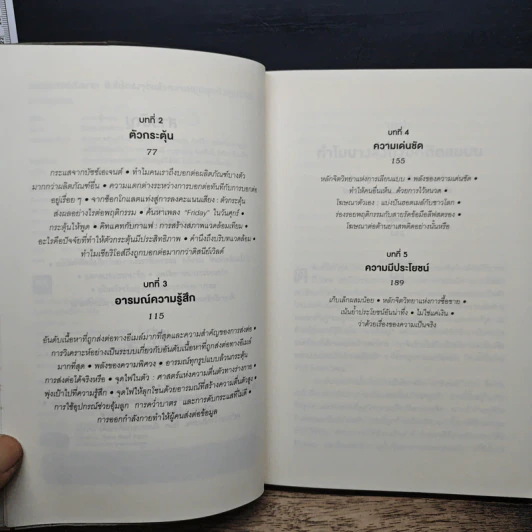 บทที่ 2
ตัวกระตุ้น
77
กระแสจากบัซซ์เอเจนต์ • ทำไมคนเราถึงบอกต่อผลิตภัณฑ์บางตัว
มากกว่าผลิตภัณฑ์อื่น • ความแตกต่างระหว่างการบอกต่อทันทีกับการบอกต่อ
อยู่เรื่อย ๆ • จากช็อกโกแลตแท่งสู่การลงคะแนนเสียง : ตัวกระตุ้น
ส่งผลอย่างไรต่อพฤติกรรม • ค้นหาเพลง "Friday" ในวันศุกร์ •
กระตุ้นให้พูด • คิทแคทกับกาแฟ : การสร้างสภาพแวดล้อมเทียม •
อะไรคือปัจจัยที่ทำให้ตัวกระตุ้นมีประสิทธิภาพ • คำนึงถึงบริบทแวดล้อม •
ทำไมเชียริโอส์ถึงถูกบอกต่อมากกว่าดิสนีย์เวิลด์
บทที่ 3
อารมณ์ความรู้สึก
115
อันดับเนื้อหาที่ถูกส่งต่อทางอีเมล์มากที่สุดและความสำคัญของการส่งต่อ •
การวิเคราะห์อย่างเป็นระบบเกี่ยวกับอันดับเนื้อหาที่ถูกส่งต่อทางอีเมล์
มากที่สุด • พลังของความพิศวง • อารมณ์ทุกรูปแบบล้วนกระตุ้น
การส่งต่อได้จริงหรือ • จุดไฟในตัว : ศาสตร์แห่งความตื่นตัวทางร่างกาย •
พุ่งเป้าไปที่ความรู้สึก • จุดไฟให้ลุกโชนด้วยอารมณ์ที่สร้างความตื่นตัวสูง •
การใช้อุปกรณ์ช่วยอุ้มลูก การคว่ำบาตร และการดับกระแสที่ไม่ดี •
การออกกำลังกายทำให้ผู้คนส่งต่อข้อมูล
บทที่ 4
ความเด่นชัด
155
หลักจิตวิทยาแห่งการเลียนแบบ • พลังของความเด่นชัด •
ทำให้คนอื่นเห็น...ด้วยการไว้หนวด •
โฆษณาตัวเอง : แบ่งปันฮอตเมล์กับชาวโลก •
ร่องรอยพฤติกรรมกับสายรัดข้อมือลีฟสตรอง •
โฆษณาต่อต้านยาเสพติดอย่างนั้นหรือ
บทที่ 5
ความมีประโยชน์
189
เก็บเล็กผสมน้อย • หลักจิตวิทยาแห่งการซื้อขาย •
เน้นย้ำประโยชน์อันน่าทึ่ง • ไม่ใช่แค่เงิน •
ว่าด้วยเรื่องของความเป็นจริง